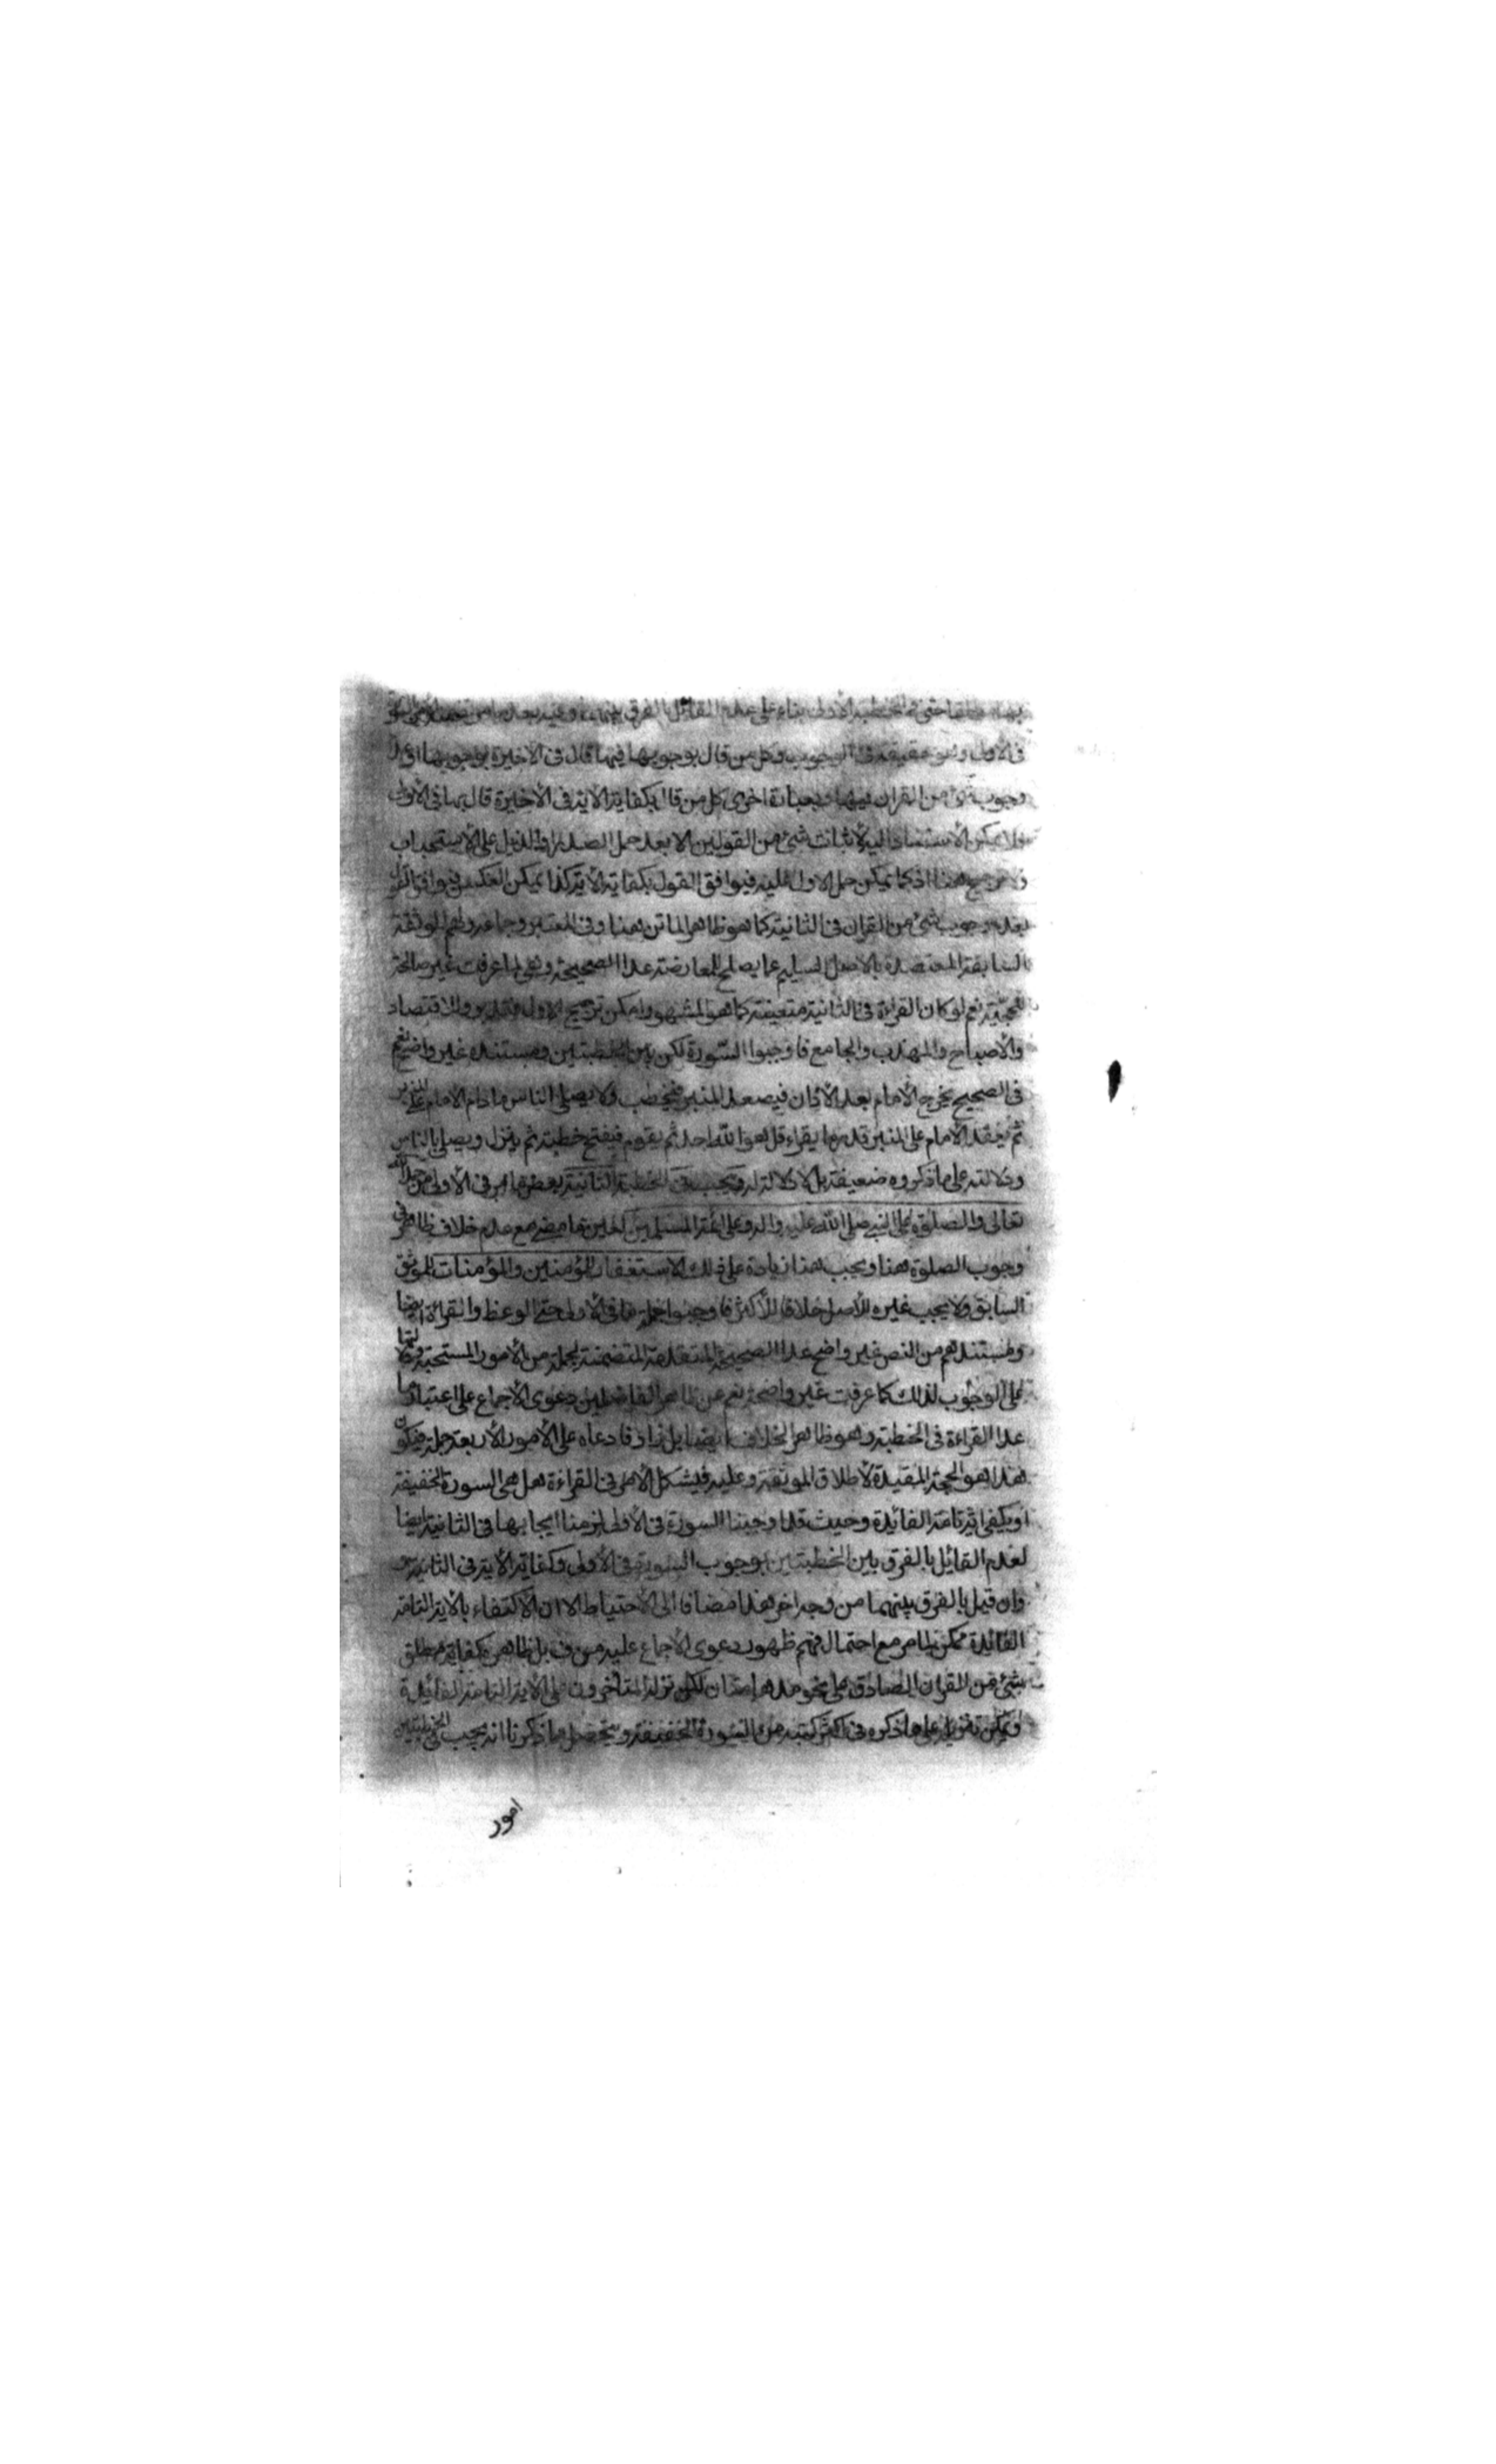 بها مطلقا حتى في الخطبة الأولى بناء على عدم القائل بالفرق بينهما وفيه بعد ما من
في الأول وهو حقيقة في الوجوب وكل من قال بوجوبها فيها قال في الاخيرة بوجوبها او
وجوب شئ من القران فيها وبعبارة اخرى كل من قال بكفاية الاية في الأخيرة قال بها في الأولى
ولا يمكن الأستناد اليه لأثبات شئ من القولين الا بعد حمل الصدر او الذيل على الأستحباب
ولا مرجح هنا اذ كما يمكن حمل الاول عليه فيوافق القول بكفاية الأية كذا يمكن العكس فيوافق القول
بعدم وجوب شئ من القران في الثانية كما هو ظاهر الماتن هنا وفي المعتبر وجماعة ولهم الموثقة
السابقة المعتضدة بالاصل السليم عما يصلح للمعارضة عدا الصحيحة وهي لما عرفت غير صالحة
للحجية نعم لو كان القراءة في الثانية متعينة كما هو المشهور امكن ترجيح الاول فتدبر وللاقتصاد
والأصباح والمهذب والجامع فاوجبوا السورة لكن بين الخطبتين ومستنده غير واضح نعم
في الصحيح يخرج الأمام بعد الأذان فيصعد المنبر فيخطب ولا يصلي الناس ما دام الامام على المنبر
ثم يقعد الامام على المنبر قدر ما يقراء قل هو الله احد ثم يقوم فيفتتح خطبته ثم ينزل ويصلي بالناس
ودلالته على ما ذكروه ضعيفة بل لا دلالة له ويجب في الخطبة الثانية بعض ما مر في الأولى من حمد الله
تعالى والصلوة على النبي صلى الله عليه واله وعلى ائمة المسلمين لعين ما مضى مع عدم خلاف ظاهر في
وجوب الصلوة هنا ويجب هنا زيادة على ذلك الاستغفار للمؤمنين والمؤمنات للموثق
السابق ولا يجب غيره للأصل خلافا للأكثر فاوجبوا جملة ما في الأولى حتى الوعظ والقراءة ايضا
ومستندهم من النص غير واضح عدا الصحيحة المتقدمة المتضمنة لجملة من الأمور المستحبة
على الوجوب لذلك كما عرفت غير واضحة نعم عن ظاهر الفاضلين دعوى الأجماع على اعتبار ما
عدا القراءة في الخطبة وهو ظاهر الخلاف ايضا بل زاد فادعاه على الأمور الأربعة جملة فيكون
هذا هو الحجة المقيدة لأطلاق الموثقة وعليه فيشكل الأمر في القراءة هل هي السورة الخفيفة
او يكفي اية تامة الفائدة وحيث قد اوجبنا السورة في الأولى لزمنا ايجابها في الثانية ايضا
لعدم القائل بالفرق بين الخطبتين بوجوب السورة في الأولى وكفاية الأية في الثانية
وان قيل بالفرق بينهما من وجه اخر هذا مضافا الى الأحتياط الا ان الأكتفاء بالاية التامة
الفائدة ممكن لما مر مع احتمال فهم ظهور دعوى الأجماع عليه من ف بل ظاهره كفاية مطلق
شئ من القران الصادق على نحو مدهامتان لكن نزله المتأخرون على الأية التامة الفائدة
ويمكن تنزيله على ما ذكره في اكثر كتبه من السورة الخفيفة ويتحصل مما ذكرنا انه يجب في الخطبتين
امور